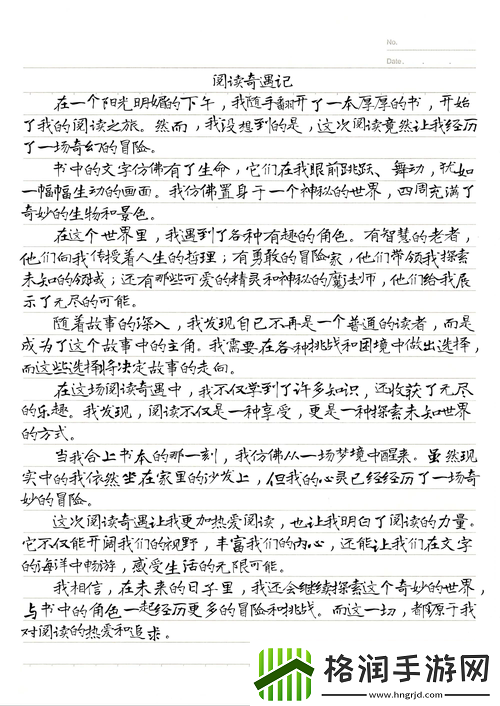 No.
Date. . .
阅读奇遇记
在一个阳光明媚的下午，我随手翻开了一本厚厚的书，开始
了我的阅读之旅。然而，我没想到的是，这次阅读竟然让我经历
了一场奇幻的冒险。
书中的文字仿佛有了生命，它们在我眼前跳跃、舞动，犹如
一幅幅生动的画面。我仿佛置身于一个神秘的世界，四周充满了
奇妙的生物和景色。
在这个世界里，我遇到了各种有趣的角色。有智慧的老者，
他们向我传授着人生的哲理；有勇敢的冒险家，他们带领我探索
未知的领域；还有那些可爱的精灵和神秘的魔法师，他们给我展
示了无尽的可能。
随着故事的深入，我发现自己不再是一个普通的读者，而是
成为了这个故事中的主角。我需要在各种挑战和困境中做出选择，
而这些选择将决定故事的走向。
在这场阅读奇遇中，我不仅学到了许多知识，还收获了无尽
的乐趣。我发现，阅读不仅是一种享受，更是一种探索未知世界
的方式。
当我合上书本的那一刻，我仿佛从一场梦境中醒来。虽然现
实中的我依然坐在家里的沙发上，但我的心灵已经经历了一场奇
妙的冒险。
这次阅读奇遇让我更加热爱阅读，也让我明白了阅读的力量。
它不仅能开阔我们的视野，丰富我们的内心，还能让我们在文字
的海洋中畅游，感受生活的无限可能。
我相信，在未来的日子里，我还会继续探索这个奇妙的世界，
与书中的角色一起经历更多的冒险和挑战。而这一切，都源于我
对阅读的热爱和追求。
格润手游网
www.hngrjd.com